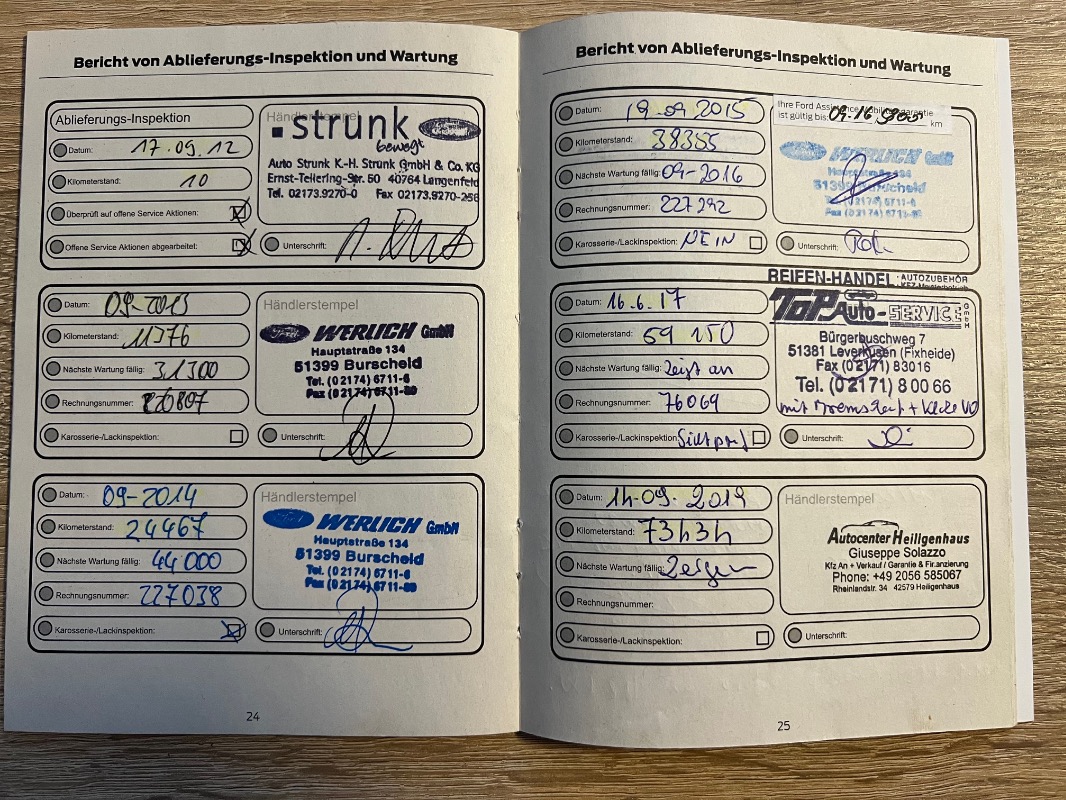 Bericht von Ablieferungs-Inspektion und Wartung
Ablieferungs-Inspektion
Datum: 17.09.12
Kilometerstand: 10
Überprüft auf offene Service Aktionen:
Offene Service Aktionen abgearbeitet:
Händlerstempel
strunk
bewegt
Auto Strunk K.-H. Strunk GmbH & Co. KG
Ernst-Tellering-Str. 50 40764 Langenfeld
Tel. 02173.9270-0 Fax 02173.9270-256
Unterschrift:
Datum: 09-2013
Kilometerstand: 11376
Nächste Wartung fällig: 31300
Rechnungsnummer: 220807
Karosserie-/Lackinspektion:
Händlerstempel
Ford WERLICH GmbH
Hauptstraße 134
51399 Burscheid
Tel. (0 21 74) 67 11-6
Fax (0 21 74) 67 11-89
Unterschrift:
Datum: 09-2014
Kilometerstand: 24467
Nächste Wartung fällig: 44000
Rechnungsnummer: 227038
Karosserie-/Lackinspektion:
Händlerstempel
Ford WERLICH GmbH
Hauptstraße 134
51399 Burscheid
Tel. (0 21 74) 67 11-6
Fax (0 21 74) 67 11-89
Unterschrift:
24
Bericht von Ablieferungs-Inspektion und Wartung
Datum: 19.09.2015
Kilometerstand: 38355
Nächste Wartung fällig: 09-2016
Rechnungsnummer: 227292
Karosserie-/Lackinspektion: NEIN
Ihre Ford Assistance Mobilitätsgarantie
ist gültig bis: 09-16 km
Ford WERLICH GmbH
Hauptstraße 134
51399 Burscheid
Tel. (0 21 74) 67 11-6
Fax (0 21 74) 67 11-89
Unterschrift:
Datum: 16.6.17
Kilometerstand: 59 150
Nächste Wartung fällig: Zeigt an
Rechnungsnummer: 76069
Karosserie-/Lackinspektion:
REIFEN-HANDEL - AUTOZUBEHÖR
TOP Auto-SERVICE GmbH
Bürgerbuschweg 7
51381 Leverkusen (Fixheide)
Fax (0 21 71) 8 30 16
Tel. (0 21 71) 8 00 66
Unterschrift:
Datum: 14.09.2019
Kilometerstand: 73434
Nächste Wartung fällig:
Rechnungsnummer:
Karosserie-/Lackinspektion:
Händlerstempel
Autocenter Heiligenhaus
Giuseppe Solazzo
Kfz An + Verkauf / Garantie & Finanzierung
Phone: +49 2056 585067
Rheinlandstr. 34 42579 Heiligenhaus
Unterschrift:
25